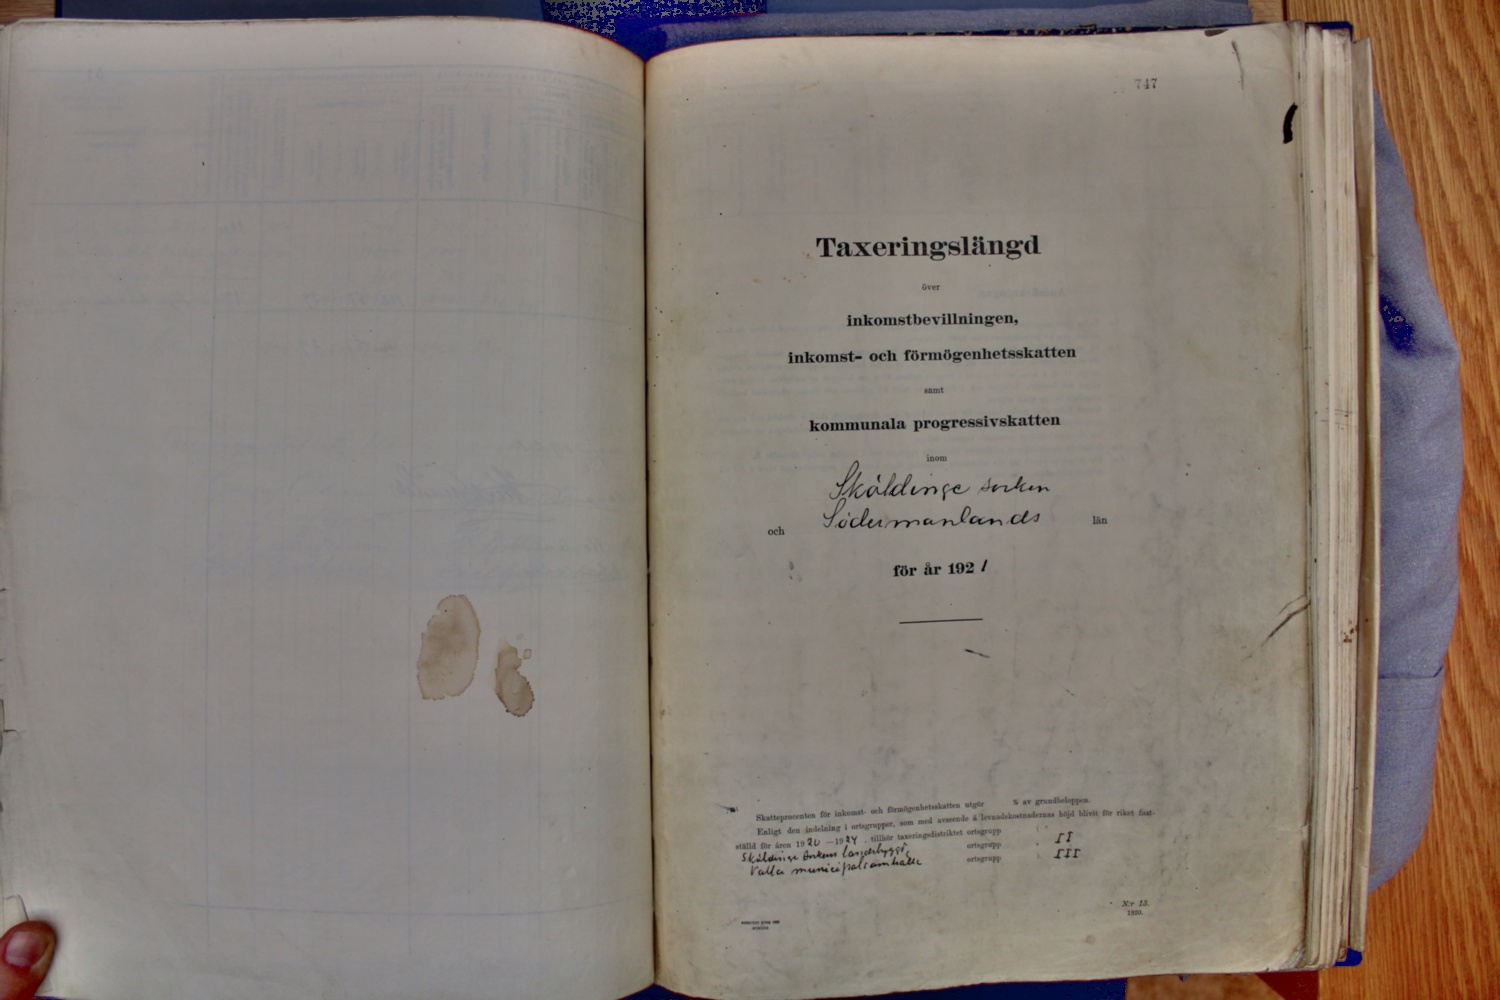 747
Taxeringslängd
över
inkomstbevillningen,
inkomst- och förmögenhetsskatten
samt
kommunala progressivskatten
inom
Sköldinge socken
och Södermanlands län
för år 1921
Skatteprocenten för inkomst- och förmögenhetsskatten utgör % av grundbeloppen.
Enligt den indelning i ortsgrupper, som med avseende å levnadskostnadernas höjd blivit för riket fast-
ställd för åren 1920—1924, tillhör taxeringsdistriktet ortsgrupp
Sköldinge sockens landsbygd, ortsgrupp II
Valla municipalsamhälle ortsgrupp III
N:r 13.
1920.